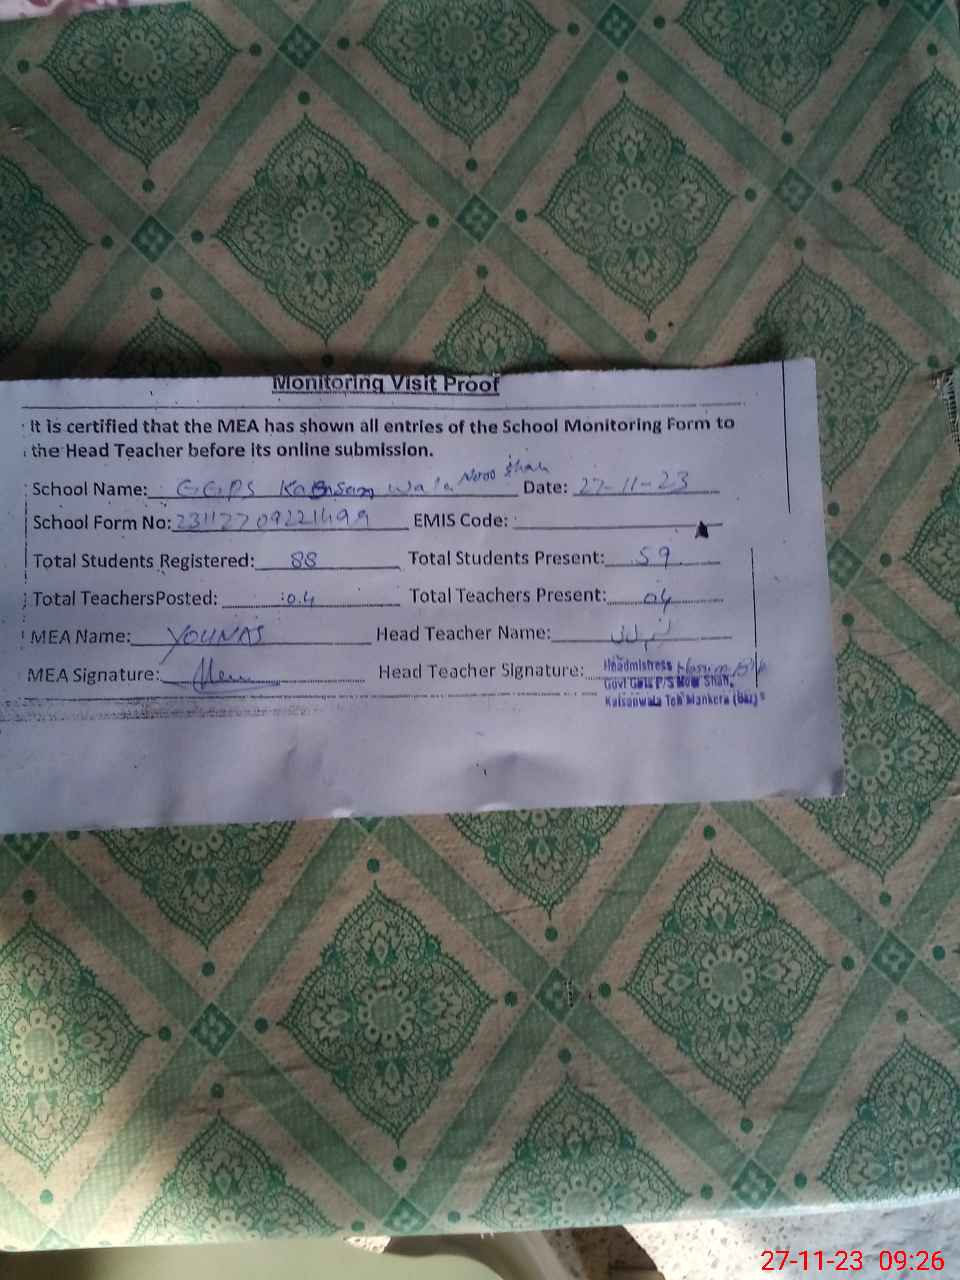 Monitoring Visit Proof
It is certified that the MEA has shown all entries of the School Monitoring Form to
the Head Teacher before its online submission.
School Name: GGPS Wala Noor Shah Date: 27-11-23
School Form No: EMIS Code:
Total Students Registered: 88 Total Students Present: 59
Total TeachersPosted: 04 Total Teachers Present: 04
MEA Name: YOUNAS Head Teacher Name:
MEA Signature: Head Teacher Signature:
Headmistress
Govt Girls P/S Noor Shah,
Kaisanwala Teh Mankera (Bkr)
27-11-23 09:26